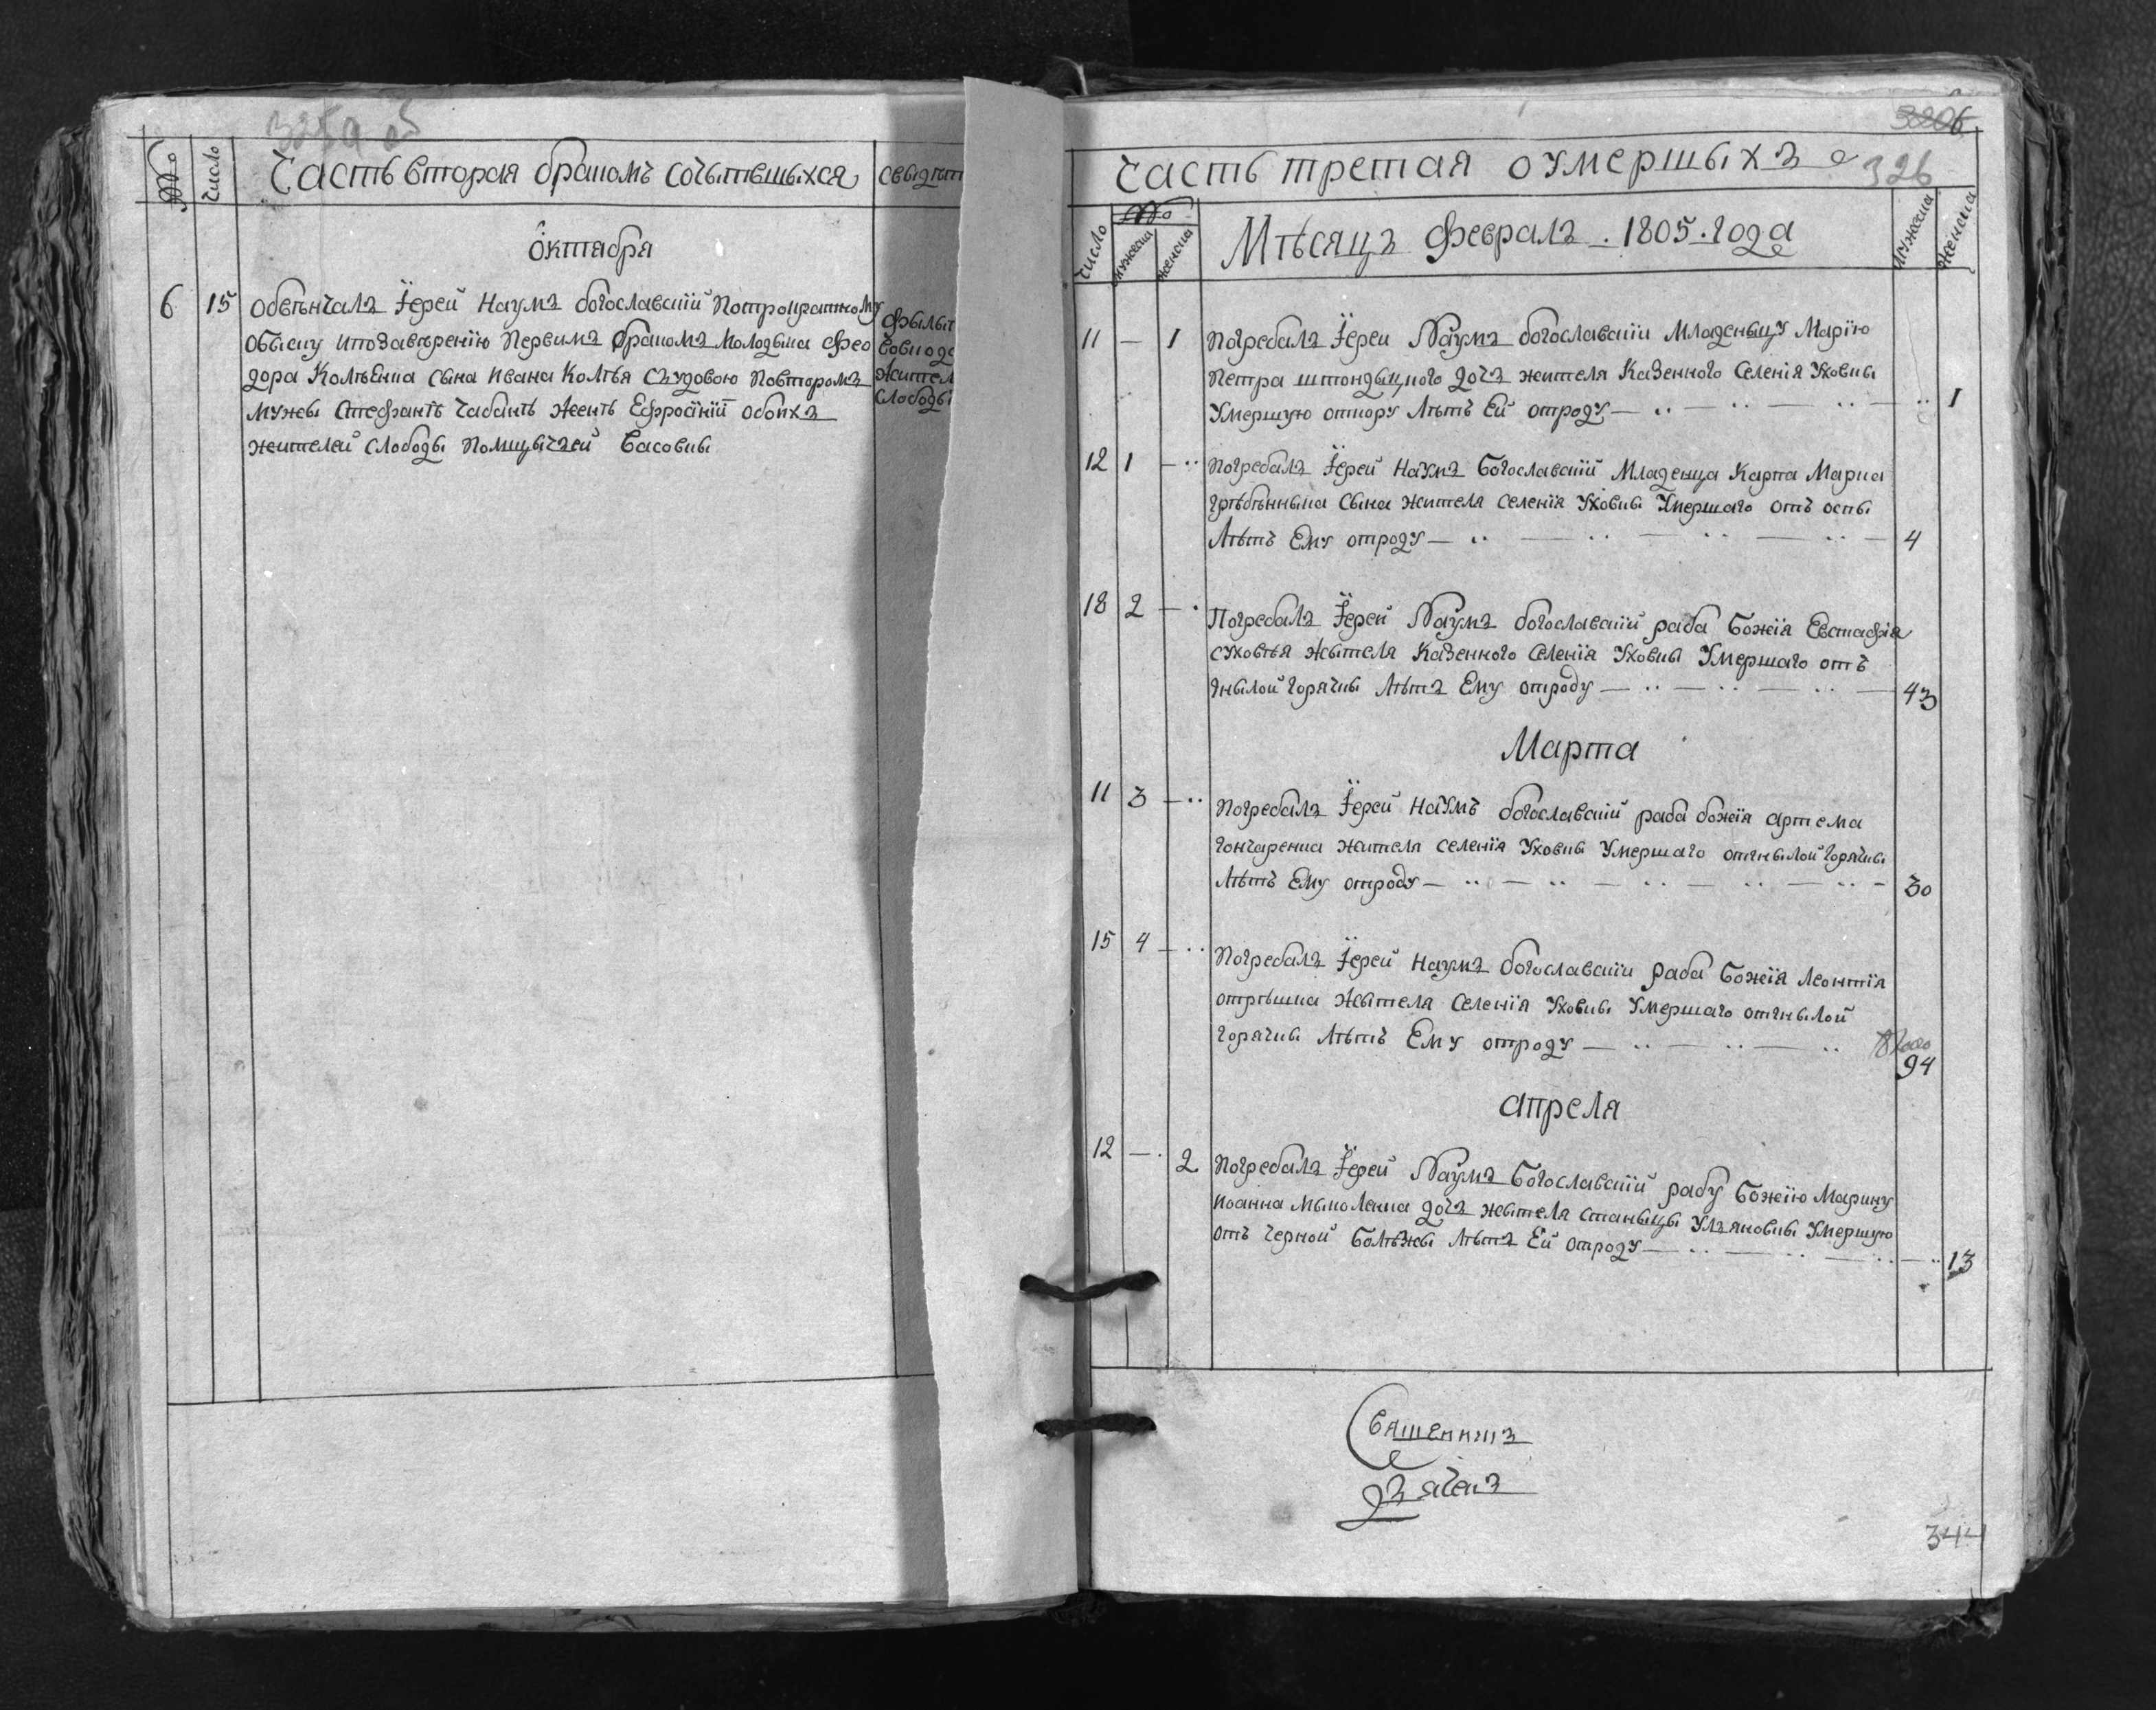 325 а об
№
число
Часть вторая бракомъ сочытавшыхся
свыдѣт
ѻктабря
6 15 Обвѣнчалъ Їерей Наумъ богославскїй потроикратному
обыску ипозаверенїю первымъ бракомъ молодыка Фео
дора Колѣенка сына Ивана Колѣя съудовою повторомъ
мужѣ Стефанѣ Чабанѣ женѣ Ефросїнїи обоихъ
жителей слободы помщычєй Басовкы
Филып
Жител
слободы
3206
326
Часть третая оумершыхъ
число
№
мужеска
женска
Мѣсяцъ Февралъ . 1805 . года
мужеска
женска
11 — 1 Погребалъ Їереи Наумъ богославскїи младеныцу Марїю
Петра штондыцкого дочъ жителя Казенного Селенїя Уховкы
Умершую откору лѣтъ Ей отроду — 1
12 1 — Погребалъ Їерей Наумъ Богославскїй Младенца Карпа Марка
грѣбѣнныка Сына жителя селенїя Уховкы Умершаго отъ оспы
лѣтъ Ему отроду — 4
18 2 — Погребалъ Їерей Наумъ богославскїй раба Божїя Евстафїя
Суховѣя жытеля Казенного селенїя Уховкы Умершаго отъ
гнылой горячкы лѣтъ Ему отроду — 43
Марта
11 3 — Погребалъ Їерей Наумъ богославскїй раба божїя артема
гончаренка жителя селенїя Уховкы Умершаго отгнылой горячкы
лѣтъ Ему отроду — 30
15 4 — Погребалъ Їерей Наумъ богославскїи раба Божїя Леонтїя
отрѣшка жытеля селенїя Уховкы Умершаго отгнылой
горячкы лѣтъ Ему отроду — 94
апреля
12 — 2 Погребалъ Їерей Наумъ Богославскїй рабу Божїю Марину
иоанна мыколенка дочъ жытеля станыцы Улъяновкы Умершую
отъ черной болѣжы лѣтъ Ей отроду — 13
Священикъ
дъячекъ
344